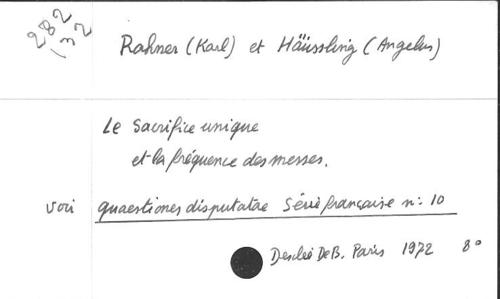 282
132
Rahner (Karl) et Häussling (Angelus)
Le Sacrifice unique
et la fréquence des messes.
voir quaestiones disputatae Série française n: 10
Desclée De B. Paris 1972 8°